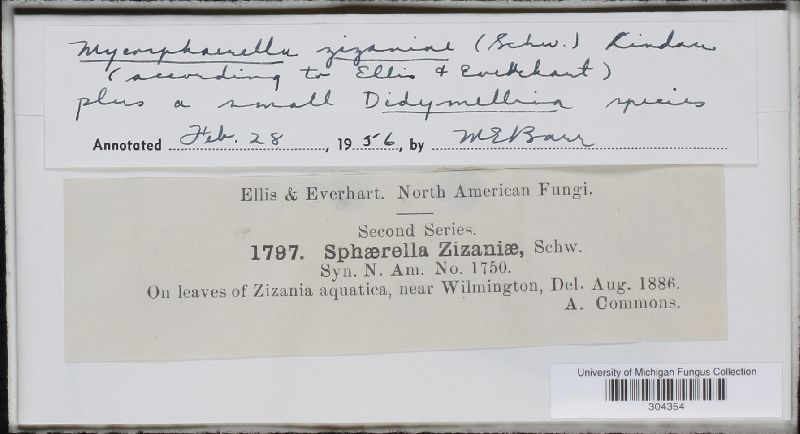 Mycosphaerella zizaniae (Schw.) Lindau
(according to Ellis & Everhart)
plus a small Didymellina species
Annotated Feb. 28, 1956, by M E Barr
Ellis & Everhart. North American Fungi.
Second Series.
1797. Sphærella Zizaniæ, Schw.
Syn. N. Am. No. 1750.
On leaves of Zizania aquatica, near Wilmington, Del. Aug. 1886.
A. Commons.
University of Michigan Fungus Collection
304354